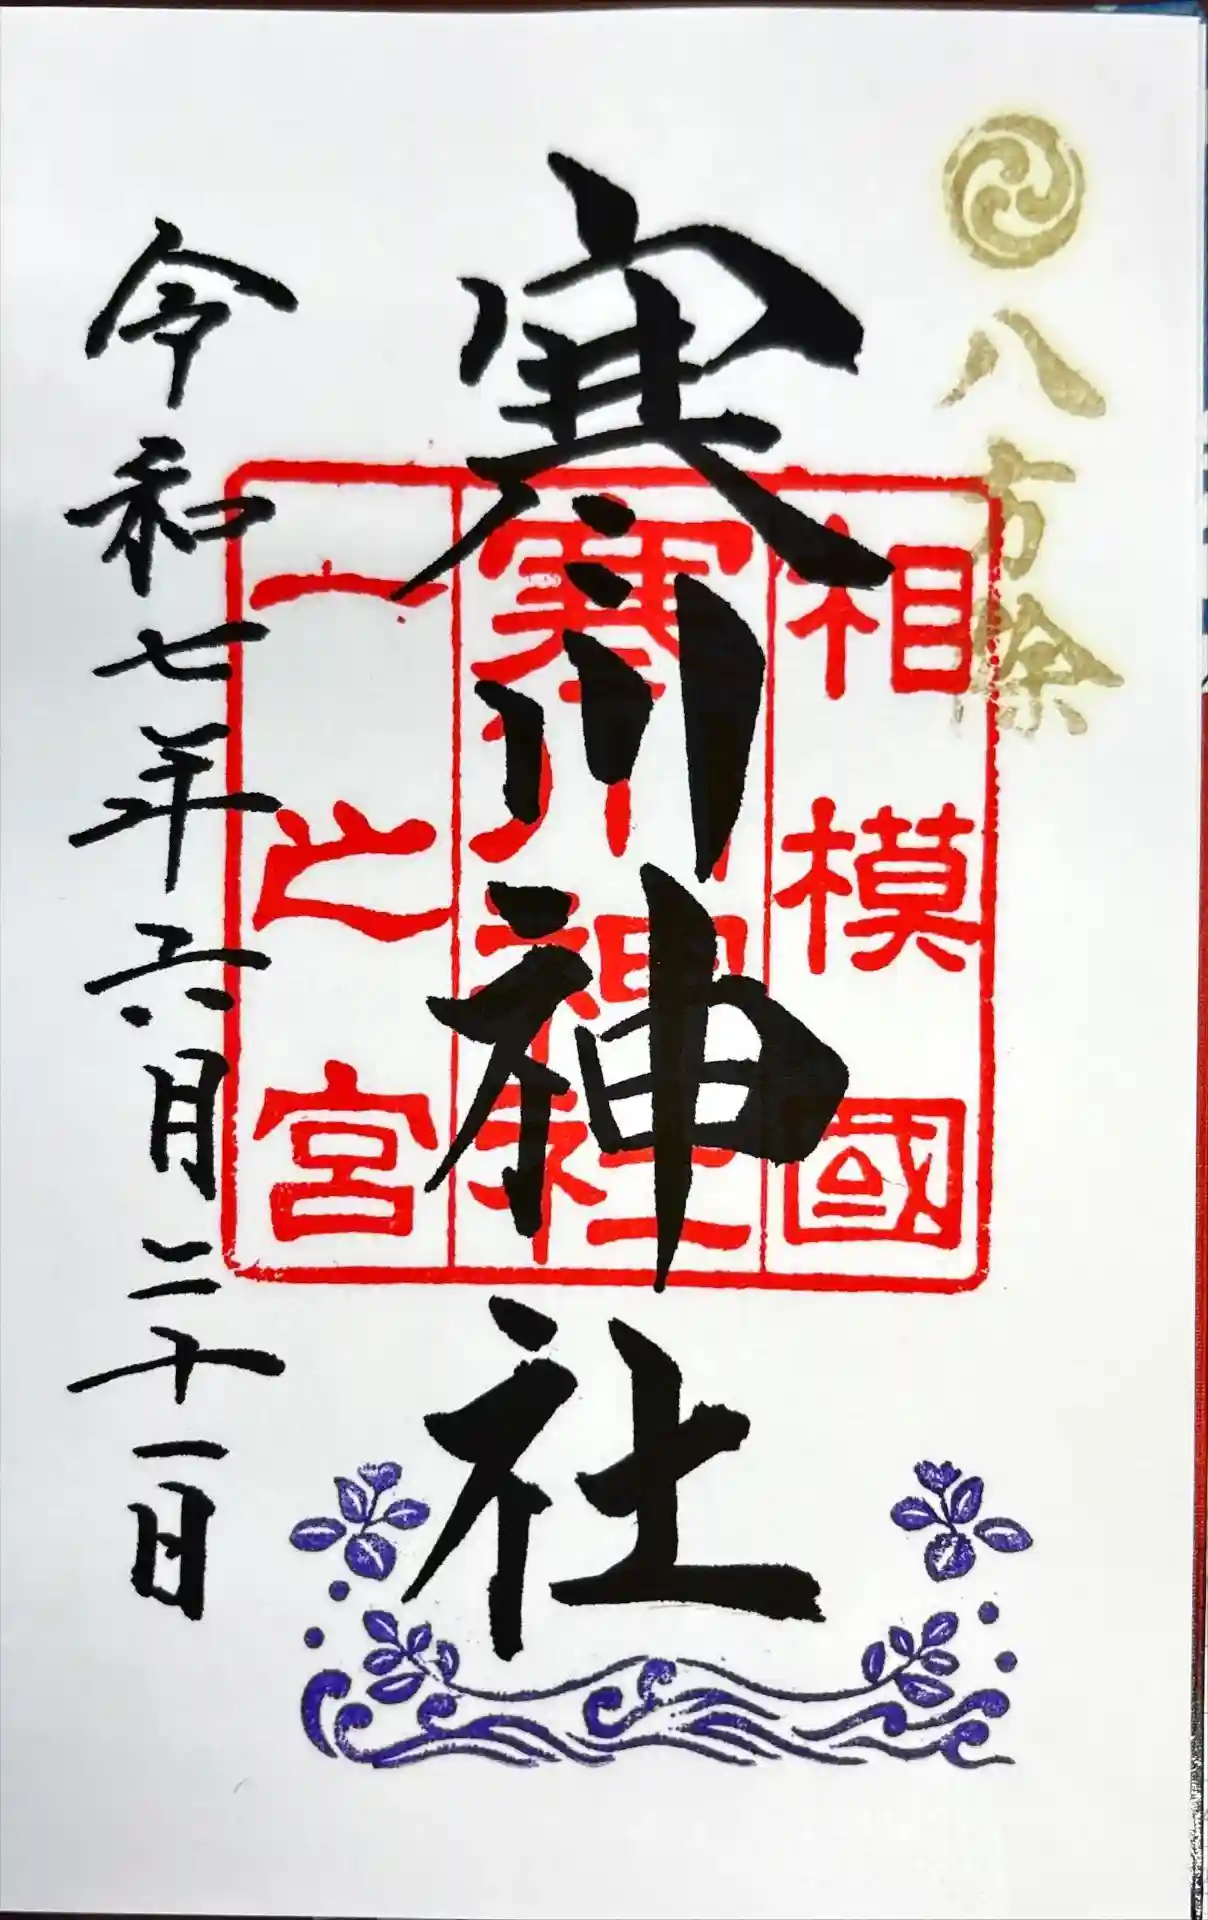 八方除
相模國
寒川神社
一之宮
寒川神社
令和七年六月二十一日